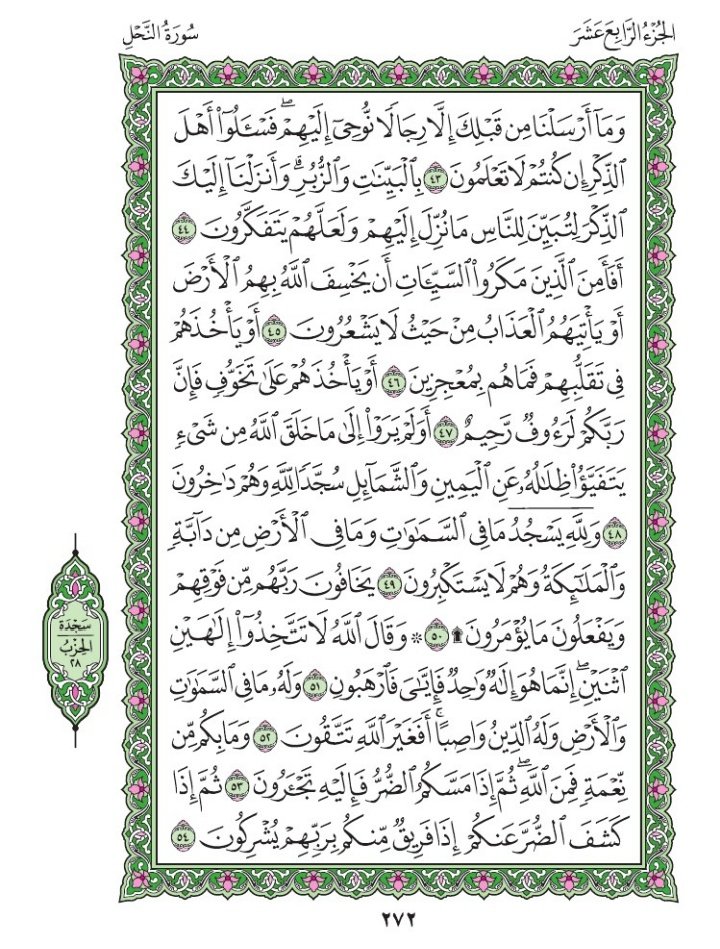 الجُزْءُ الرَّابِعَ عَشَرَ
سُورَةُ النَّحْلِ
وَمَآ أَرْسَلْنَا مِن قَبْلِكَ إِلَّا رِجَالًا نُّوحِىٓ إِلَيْهِمْۖ فَسْـَٔلُوٓا۟ أَهْلَ
ٱلذِّكْرِ إِن كُنتُمْ لَا تَعْلَمُونَ ٤٣ بِٱلْبَيِّنَـٰتِ وَٱلزُّبُرِۗ وَأَنزَلْنَآ إِلَيْكَ
ٱلذِّكْرَ لِتُبَيِّنَ لِلنَّاسِ مَا نُزِّلَ إِلَيْهِمْ وَلَعَلَّهُمْ يَتَفَكَّرُونَ ٤٤
أَفَأَمِنَ ٱلَّذِينَ مَكَرُوا۟ ٱلسَّيِّـَٔاتِ أَن يَخْسِفَ ٱللَّهُ بِهِمُ ٱلْأَرْضَ
أَوْ يَأْتِيَهُمُ ٱلْعَذَابُ مِنْ حَيْثُ لَا يَشْعُرُونَ ٤٥ أَوْ يَأْخُذَهُمْ
فِى تَقَلُّبِهِمْ فَمَا هُم بِمُعْجِزِينَ ٤٦ أَوْ يَأْخُذَهُمْ عَلَىٰ تَخَوُّفٍ فَإِنَّ
رَبَّكُمْ لَرَءُوفٌ رَّحِيمٌ ٤٧ أَوَلَمْ يَرَوْا۟ إِلَىٰ مَا خَلَقَ ٱللَّهُ مِن شَىْءٍ
يَتَفَيَّؤُا۟ ظِلَـٰلُهُۥ عَنِ ٱلْيَمِينِ وَٱلشَّمَآئِلِ سُجَّدًا لِّلَّهِ وَهُمْ دَٰخِرُونَ
٤٨ وَلِلَّهِ يَسْجُدُ مَا فِى ٱلسَّمَـٰوَٰتِ وَمَا فِى ٱلْأَرْضِ مِن دَآبَّةٍ
وَٱلْمَلَـٰٓئِكَةُ وَهُمْ لَا يَسْتَكْبِرُونَ ٤٩ يَخَافُونَ رَبَّهُم مِّن فَوْقِهِمْ
وَيَفْعَلُونَ مَا يُؤْمَرُونَ ۩ ٥٠ ۞ وَقَالَ ٱللَّهُ لَا تَتَّخِذُوٓا۟ إِلَـٰهَيْنِ
ٱثْنَيْنِۖ إِنَّمَا هُوَ إِلَـٰهٌ وَٰحِدٌ فَإِيَّـٰىَ فَٱرْهَبُونِ ٥١ وَلَهُۥ مَا فِى ٱلسَّمَـٰوَٰتِ
وَٱلْأَرْضِ وَلَهُ ٱلدِّينُ وَاصِبًاۚ أَفَغَيْرَ ٱللَّهِ تَتَّقُونَ ٥٢ وَمَا بِكُم مِّن
نِّعْمَةٍ فَمِنَ ٱللَّهِۖ ثُمَّ إِذَا مَسَّكُمُ ٱلضُّرُّ فَإِلَيْهِ تَجْـَٔرُونَ ٥٣ ثُمَّ إِذَا
كَشَفَ ٱلضُّرَّ عَنكُمْ إِذَا فَرِيقٌ مِّنكُم بِرَبِّهِمْ يُشْرِكُونَ ٥٤
سَجْدَة
الحِزْبُ
٢٨
٢٧٢